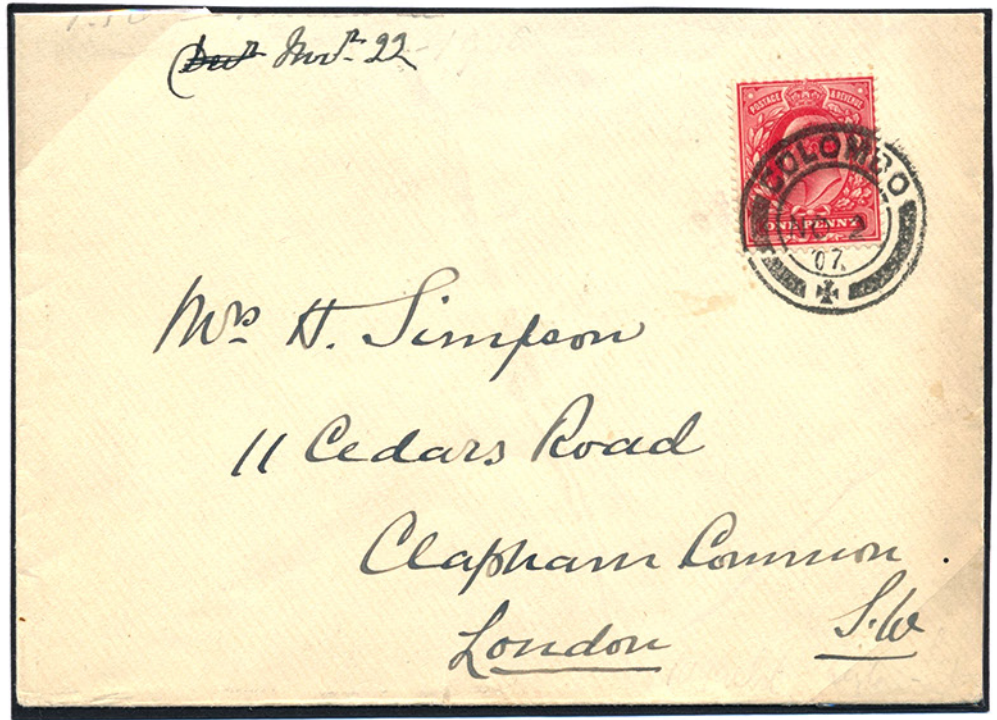 Novr 22
POSTAGE & REVENUE
ONE PENNY
COLOMBO
NO 2
07
Mrs H. Simpson
11 Cedars Road
Clapham Common
London S.W